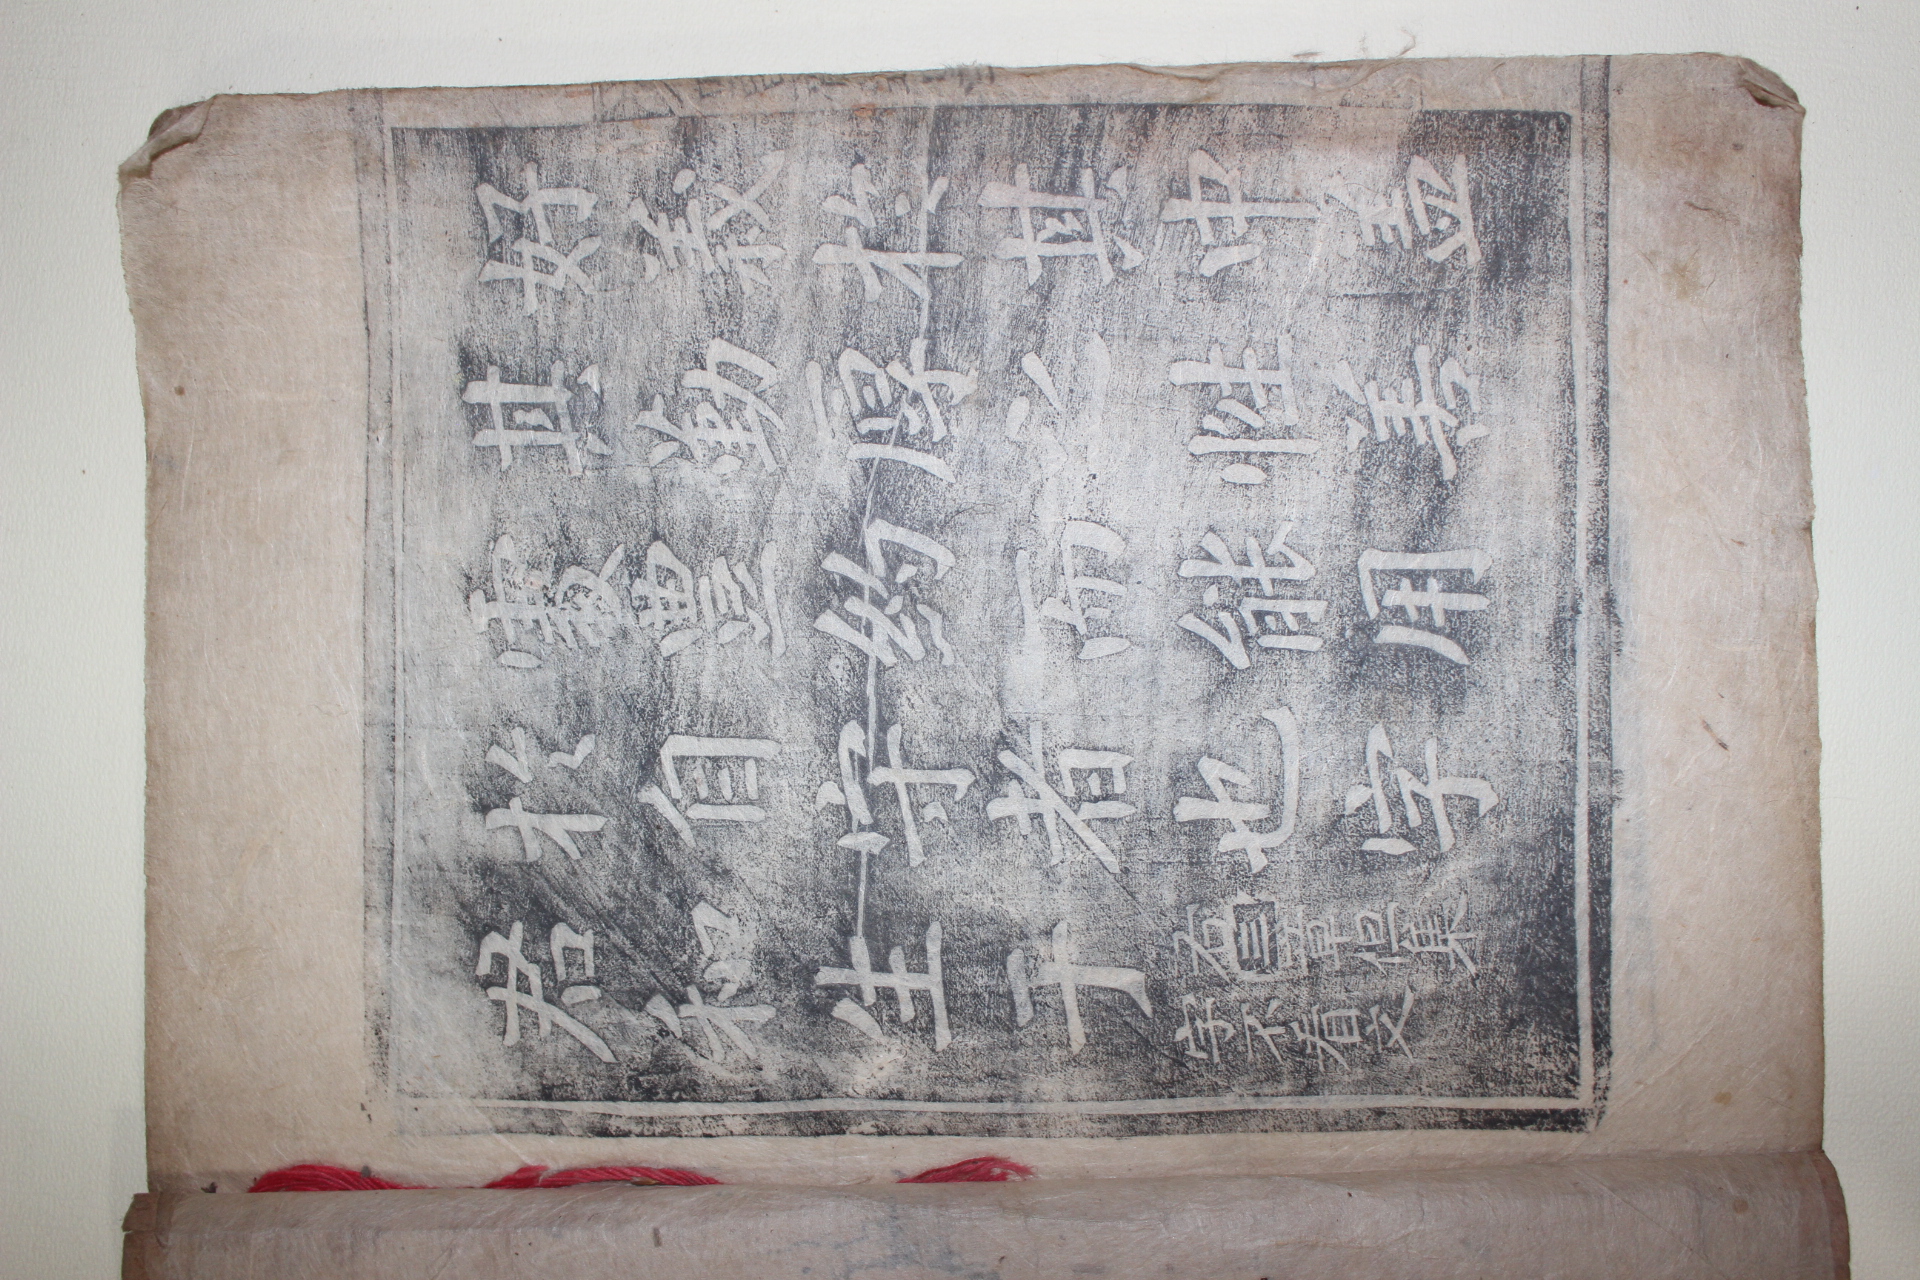 好義於其中盖
其勤厚之性善
處豊約而能用
於自守者也字
君和生于
右三章但集
字不看文